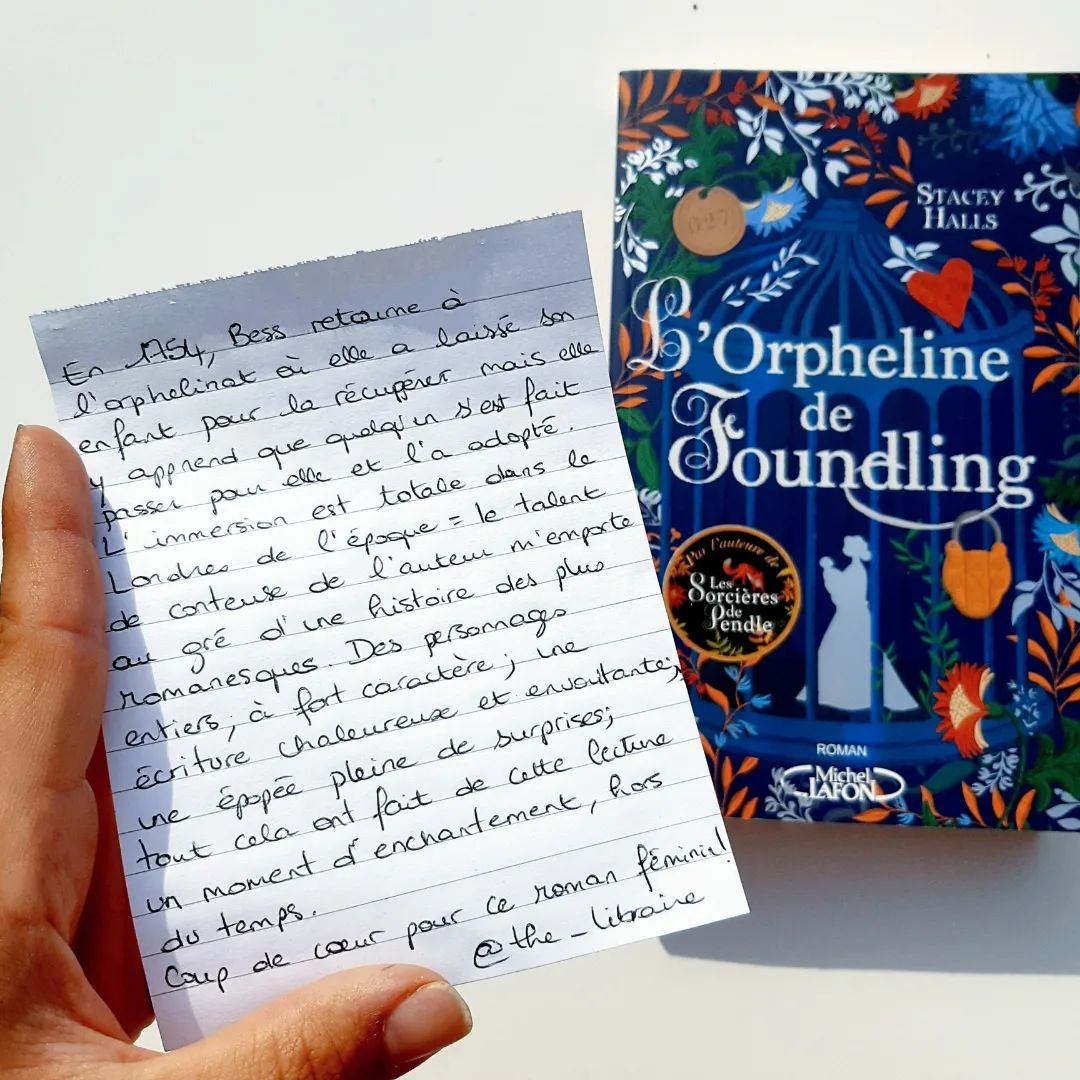 En 1754, Bess retourne à
l'orphelinat où elle a laissé son
enfant pour la récupérer mais elle
y apprend que quelqu'un s'est fait
passer pour elle et l'a adopté.
L'immersion est totale dans le
Londres de l'époque = le talent
de conteuse de l'auteur m'emporte
au gré d'une histoire des plus
romanesques. Des personnages
entiers, à fort caractère; une
écriture chaleureuse et envoûtante;
une épopée pleine de surprises;
tout cela ont fait de cette lecture
un moment d'enchantement, hors
du temps.
Coup de cœur pour ce roman féminin!
@the_libraire
627
STACEY
HALLS
L'Orpheline
de
Foundling
Par l'auteure de
Les
Sorcières
de
Pendle
ROMAN
Michel
LAFON